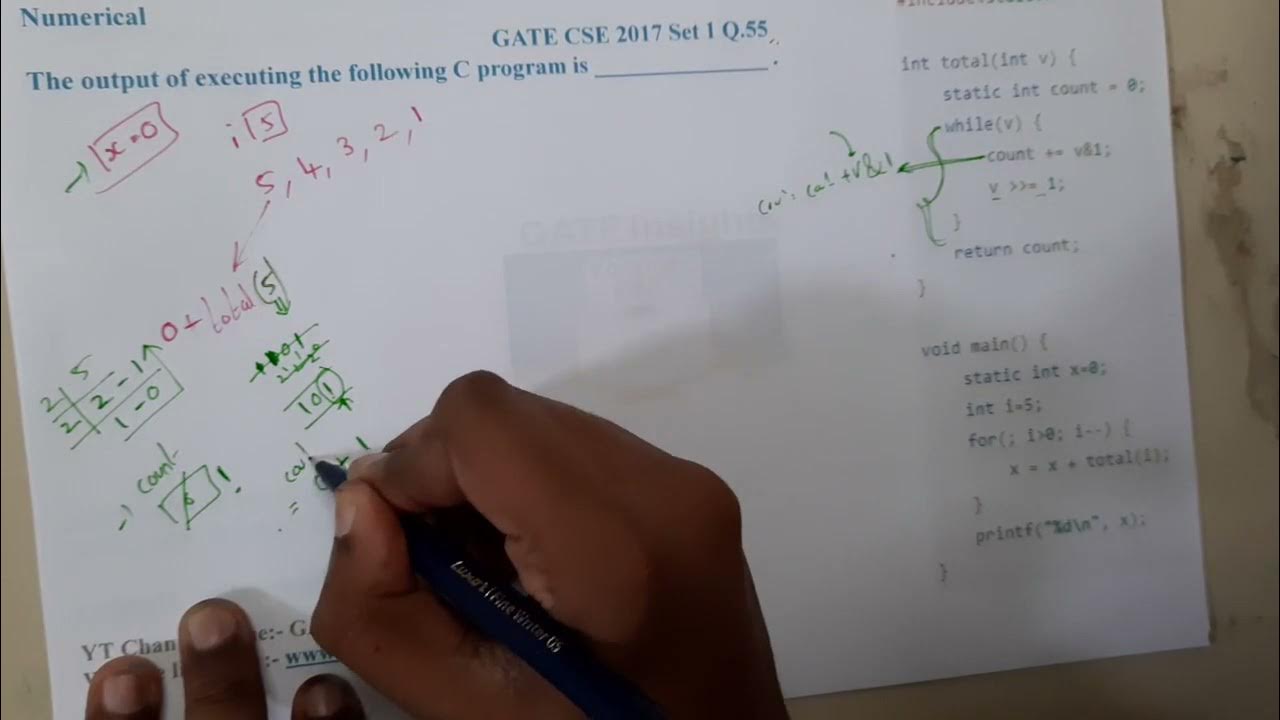 Numerical
GATE CSE 2017 Set 1 Q.55
The output of executing the following C program is ____________.
x=0
i 5
5, 4, 3, 2, 1
0+total(5)
2 5
2 2-1
1-0
101
count
int total(int v) {
static int count = 0;
while(v) {
count += v&1;
v >>= 1;
}
return count;
}
void main() {
static int x=0;
int i=5;
for(; i>0; i--) {
x = x + total(i);
}
printf("%d\n", x);
}
+v&1
GATE Insights
YT Chan
:- www.
Luxor Fine Writer 05